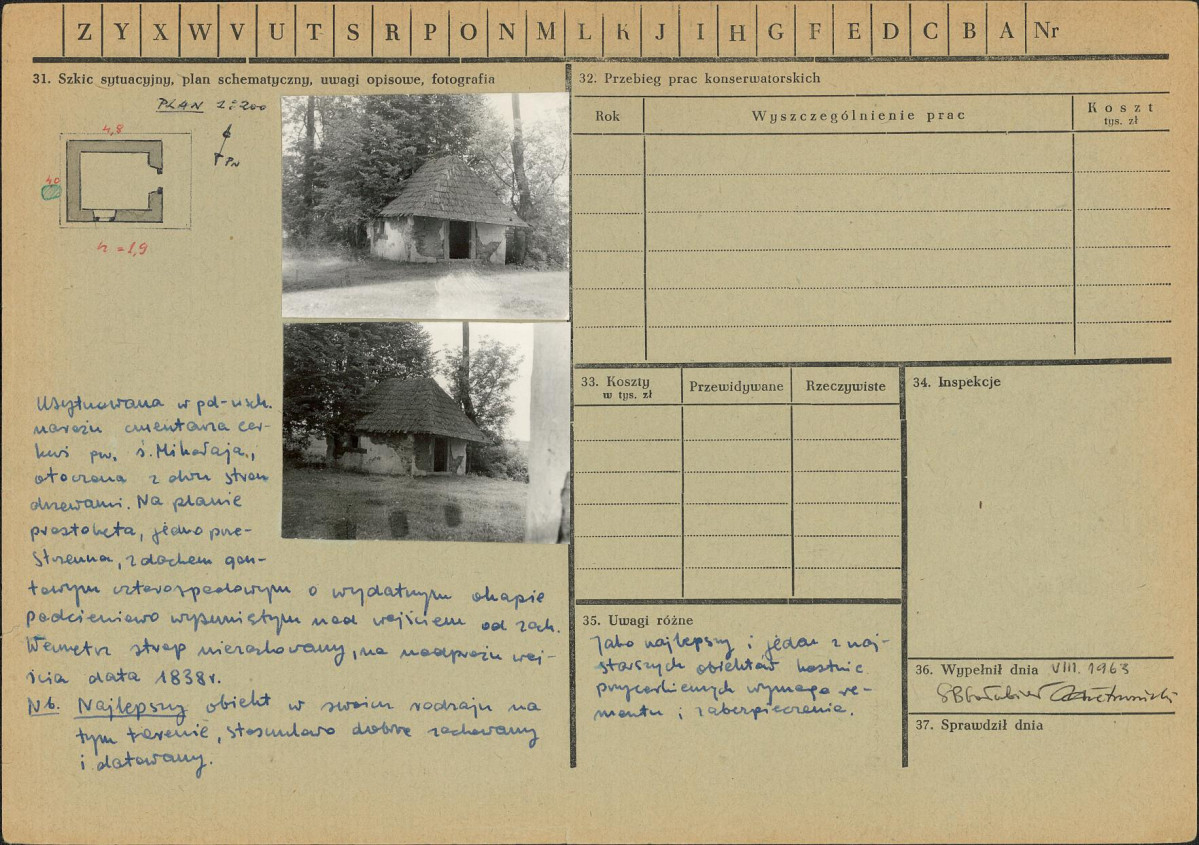 Z Y X W V U T S R P O N M L K J I H G F E D C B A Nr
31. Szkic sytuacyjny, plan schematyczny, uwagi opisowe, fotografia
PLAN 1:200
4,8
PN
40
h = 1,9
Usytuowana w pd-wsch.
narożu cmentarza cer-
kwi pw. ś. Mikołaja,
otoczona z dwu stron
drzewami. Na planie
prostokąta, jedno prze-
strzenna, z dachem gon-
towym czterospadowym o wydatnym okapie
podcieniowo wysuniętym nad wejściem od zach.
Wewnątrz strop niezachowany, na nadprożu wej-
ścia data 1838 r.
Nb. Najlepszy obiekt w swoim rodzaju na
tym terenie, stosunkowo dobrze zachowany
i datowany.
32. Przebieg prac konserwatorskich
Rok Wyszczególnienie prac Koszt
tys. zł
33. Koszty
w tys. zł
Przewidywane Rzeczywiste
34. Inspekcje
35. Uwagi różne
Jako najlepszy i jeden z naj-
starszych obiektów kostnic
przycerkiewnych wymaga re-
montu i zabezpieczenia.
36. Wypełnił dnia VIII. 1963
37. Sprawdził dnia